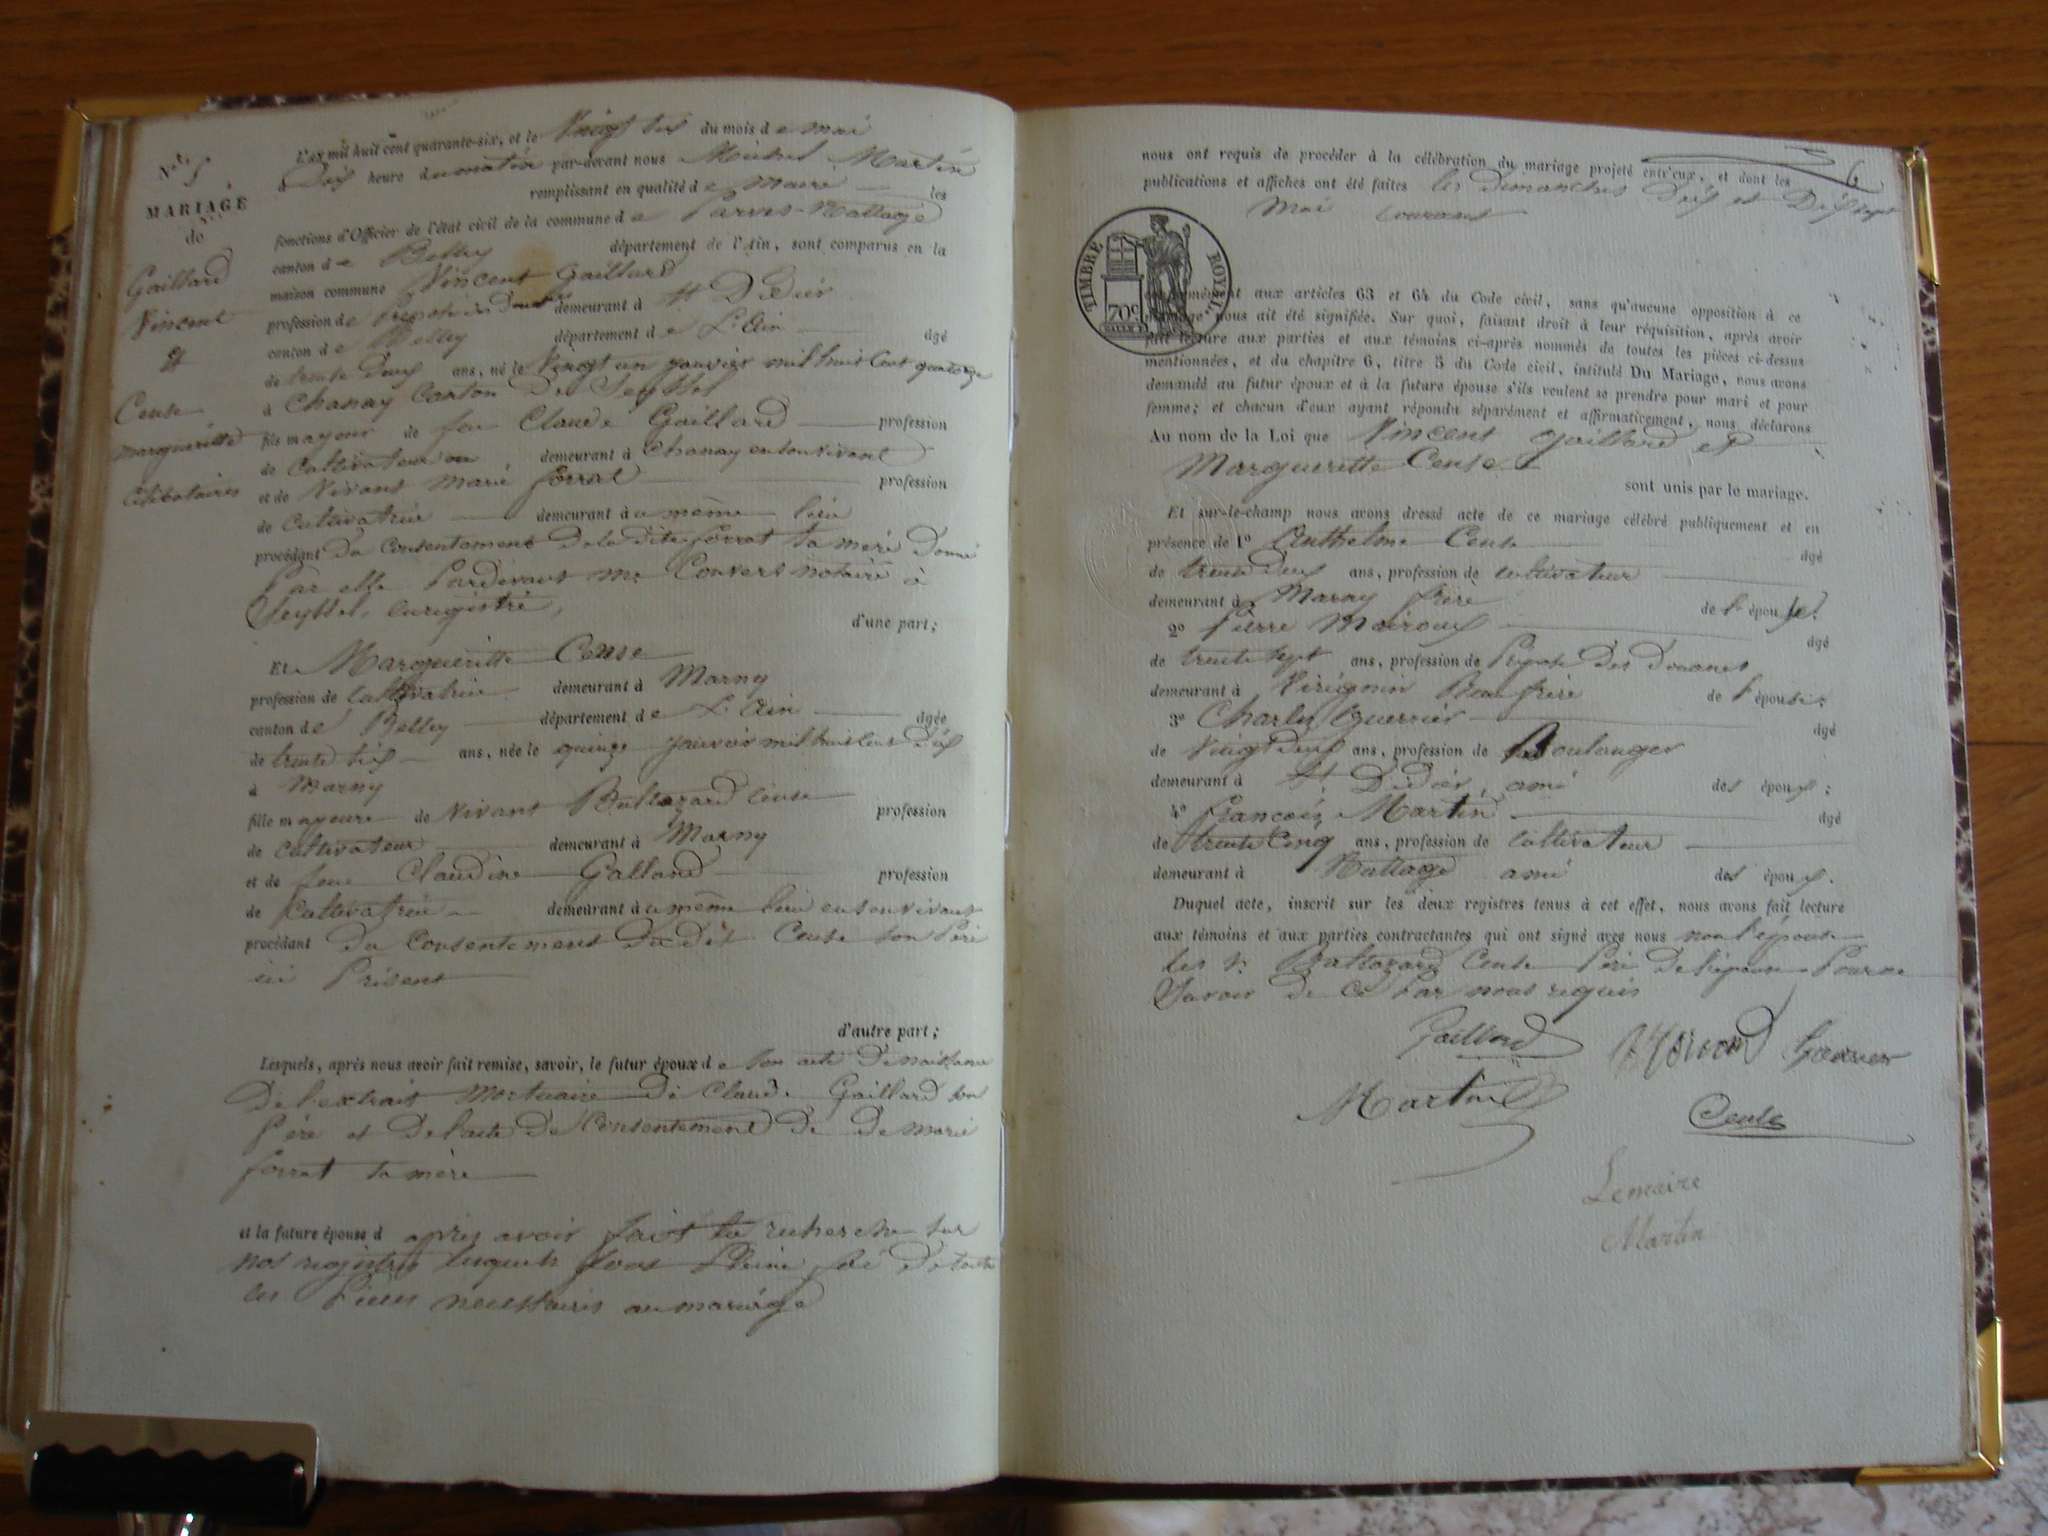 N° 5
MARIAGE
de
Gaillard
Vincent
&
Ceuse
margueritte
célibataires
L'an mil huit cent quarante-six, et le Vingt six du mois de mai
Dix heure du matin par-devant nous Michel Martin
remplissant en qualité de Maire les
fonctions d'Officier de l'état civil de la commune de Parves-Nattage
canton de Belley département de l'Ain, sont comparus en la
maison commune Vincent Gaillard
profession de demeurant à St Didier
canton de Belley département de L'Ain âgé
de trente deux ans, né le Vingt un janvier mil huit cent quatorze
à Chanay Canton De Seyssel
fils mayeur de feu Claude Gaillard profession
de Cultivateur demeurant à Chanay en son vivant
et de Vivant marie forrat profession
de Cultivatrice demeurant au même lieu
procédant Du Consentement De la dite forrat sa mère Donné
Par elle Pardevant me Convers notaire à
Seyssel, enregistré,
d'une part;
Et Margueritte Ceuse
profession de Cultivatrice demeurant à Marny
canton de Belley département de L'Ain âgée
de trente six ans, née le quinze janvier mil huit cent Dix
à Marny
fille mayeure de Vivant Baltazard Ceuse profession
de Cultivateur demeurant à Marny
et de feue Claudine Galland profession
de Cultivatrice demeurant au même lieu en son vivant
procédant du Consentement Du dit Ceuse son Père
ici Présent
d'autre part;
Lesquels, après nous avoir fait remise, savoir, le futur époux de son acte De naissance
De l'extrait Mortuaire De Claude Gaillard son
Père et De l'acte De Consentement De De marie
forrat sa mère
et la future épouse d après avoir fait la recherche sur
nos registres lesquels font Pleine foi De toutes
les Pièces nécessaires au mariage
6
nous ont requis de procéder à la célébration du mariage projeté entr'eux, et dont les
publications et affiches ont été faites les Dimanches Dix et Dix sept
Mai courant
TIMBRE ROYAL
70c
conformément aux articles 63 et 64 du Code civil, sans qu'aucune opposition à ce
mariage nous ait été signifiée. Sur quoi, faisant droit à leur réquisition, après avoir
fait lecture aux parties et aux témoins ci-après nommés de toutes les pièces ci-dessus
mentionnées, et du chapitre 6, titre 5 du Code civil, intitulé Du Mariage, nous avons
demandé au futur époux et à la future épouse s'ils veulent se prendre pour mari et pour
femme; et chacun d'eux ayant répondu séparément et affirmativement, nous déclarons
Au nom de la Loi que Vincent Gaillard et
Margueritte Ceuse
sont unis par le mariage.
Et sur-le-champ nous avons dressé acte de ce mariage célébré publiquement et en
présence de 1° Anthelme Ceuse âgé
de trente deux ans, profession de cultivateur
demeurant à Marny frère de l'épouse;
2° Pierre Mairoux âgé
de trente sept ans, profession de Préposé Des Douanes
demeurant à Virignin Beau frère de l'épouse;
3° Charles Guerrier âgé
de Vingt Deux ans, profession de Boulanger
demeurant à St Didier, ami des époux;
4° François Martin âgé
de trente Cinq ans, profession de Cultivateur
demeurant à Nattage ami des époux.
Duquel acte, inscrit sur les deux registres tenus à cet effet, nous avons fait lecture
aux témoins et aux parties contractantes qui ont signé avec nous non l'épouse
Baltazard Ceuse Père De l'épouse Pour ne
Savoir De Ce Par nous requis
Gaillard
Martin
Ceuse
Lemaire
Martin